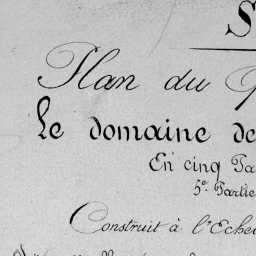 S
Plan du
Le domaine de
En cinq Pa
5e. Partie
Construit à l'Eche